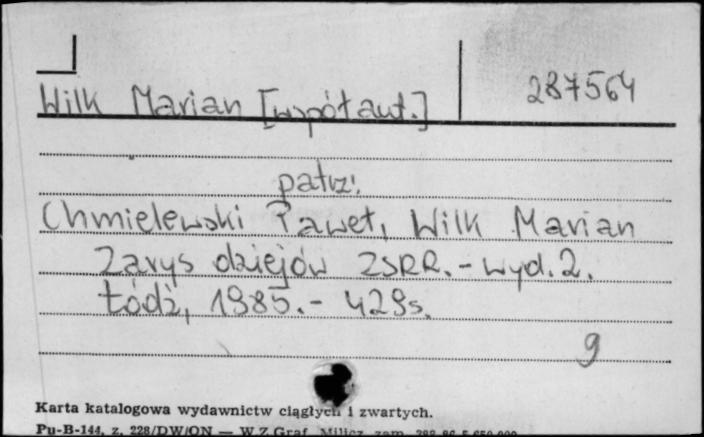 Wilk Marian [współaut.] 287564
patrz:
Chmielewski Paweł, Wilk Marian
Zarys dziejów ZSRR. - wyd. 2.
Łódź, 1985. - 429s.
g
Karta katalogowa wydawnictw ciągłych i zwartych.
Pu-B-144, z. 228/DW/ON — W.Z.Graf. Milicz, zam.